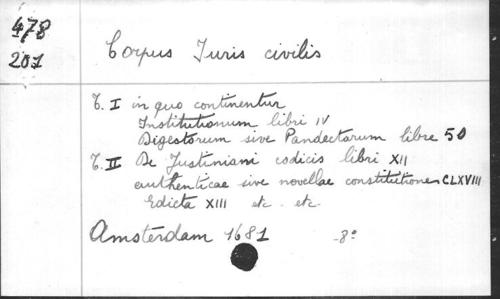 478
201
Corpus Juris civilis
T. I in quo continentur
Institutionum libri IV
Digestorum sive Pandectarum libre 50
T. II De Justiniani codicis libri XII
authenticae sive novellae constitutiones CLXVIII
Edicta XIII etc. etc.
Amsterdam 1681 -8°